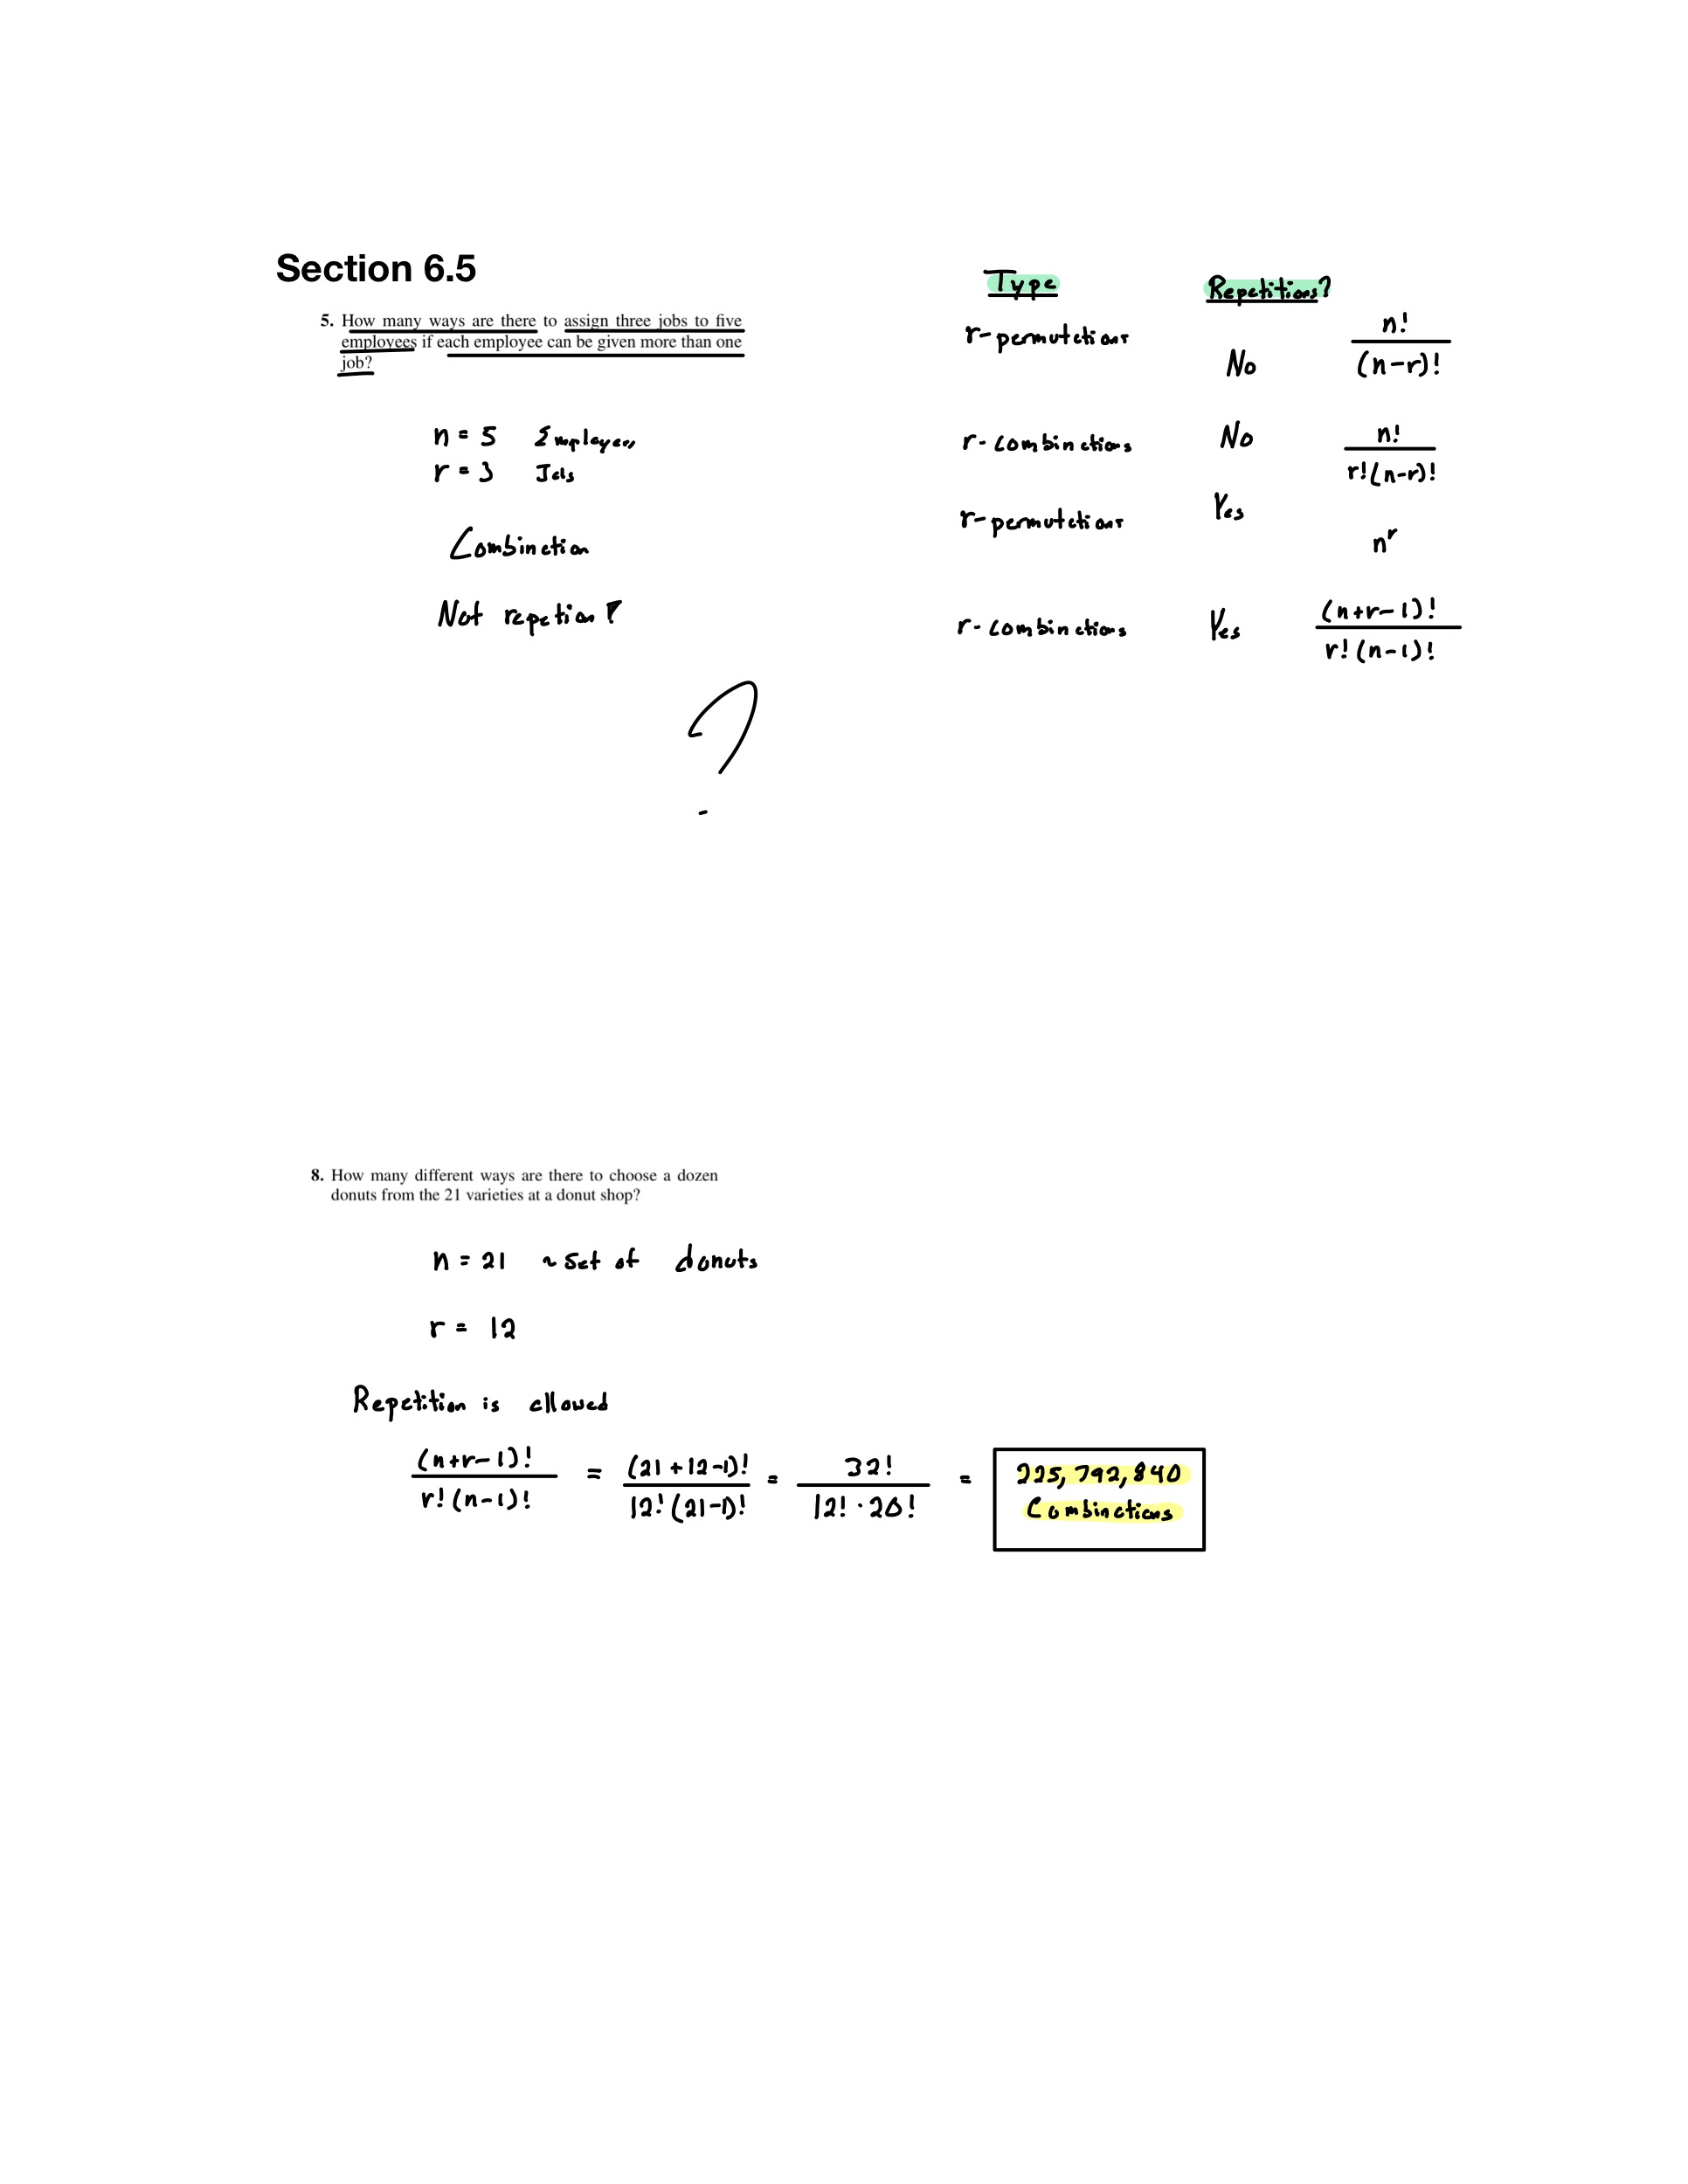 Section 6.5
5. How many ways are there to assign three jobs to five
employees if each employee can be given more than one
job?
n = 5 Employees
r = 3 Jobs
Combination
Not repetion?
?
Type Repetitions?
r-permutations No n! / (n-r)!
r-combinations No n! / r!(n-r)!
r-permutations Yes n^r
r-combinations Yes (n+r-1)! / r!(n-1)!
8. How many different ways are there to choose a dozen
donuts from the 21 varieties at a donut shop?
n = 21 ~ Set of donuts
r = 12
Repetition is allowed
(n+r-1)! / r!(n-1)! = (21+12-1)! / 12!(21-1)! = 32! / 12! · 20! = 225,792,840
Combinations